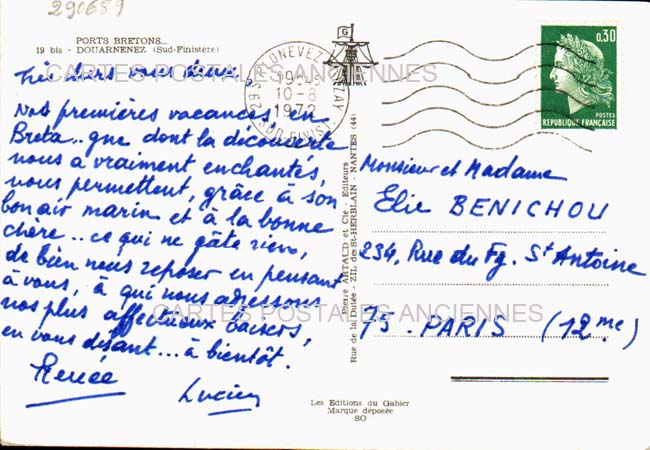 290689
PORTS BRETONS...
19 bis - DOUARNENEZ (Sud-Finistère)
Très chers vous deux,
Nos premières vacances, en
Breta..gne dont la découverte
nous a vraiment enchantés,
nous permettent, grâce à son
bon air marin et à la bonne
chère... ce qui ne gâte rien,
de bien nous reposer en pensant
à vous, à qui nous adressons
nos plus affectueux baisers,
en vous disant... à bientôt.
Renée
Lucien
CARTES POSTALES ANCIENNES
CARTES POSTALES ANCIENNES
G
29 S PLONEVEZ PORZAY
19H
10-8
1972
SUD FINIST
Pierre ARTAUD et Cie - Editeurs
Rue de la Dutée - ZIL de St-HERBLAIN - NANTES (44)
0,30
POSTES
REPUBLIQUE FRANÇAISE
Monsieur et Madame
Elie BENICHOU
234, Rue du Fg. St Antoine
75 - PARIS (12me)
Les Editions du Gabier
Marque déposée
SO